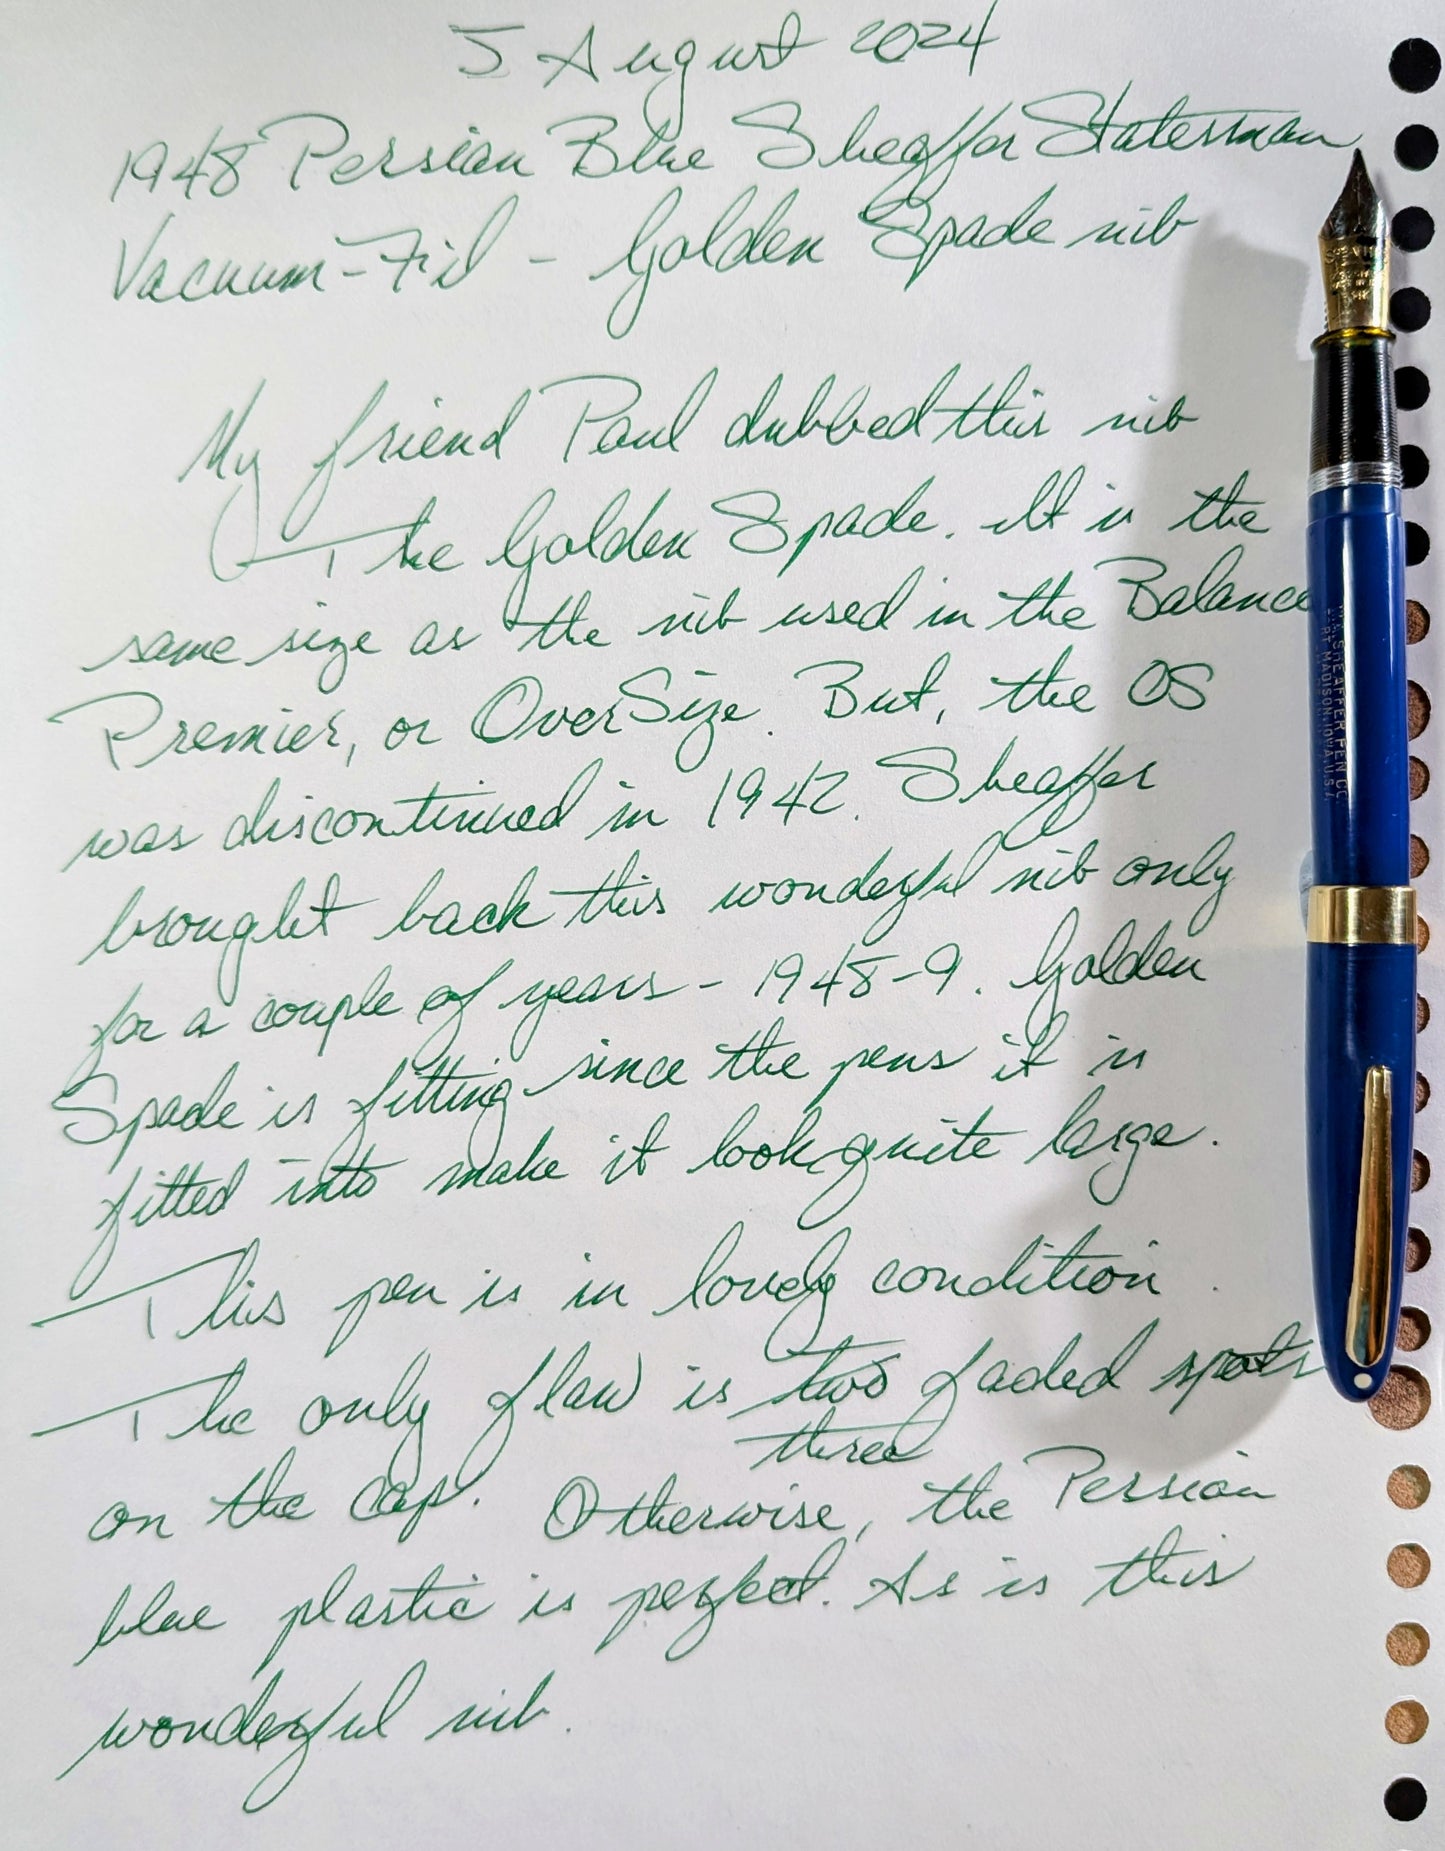 5 August 2024
1948 Persian Blue Sheaffer Statesman
Vacuum-Fil - Golden Spade nib
My friend Paul dubbed this nib
The Golden Spade. It is the
same size as the nib used in the Balance
Premier, or OverSize. But, the OS
was discontinued in 1942. Sheaffer
brought back this wonderful nib only
for a couple of years - 1948-9. Golden
Spade is fitting since the pens it is
fitted into make it look quite large.
This pen is in lovely condition.
The only flaw is two faded spots
three
on the cap. Otherwise, the Persian
blue plastic is perfect. As is this
wonderful nib.
W.A. SHEAFFER PEN CO.
FORT MADISON, IOWA, U.S.A.